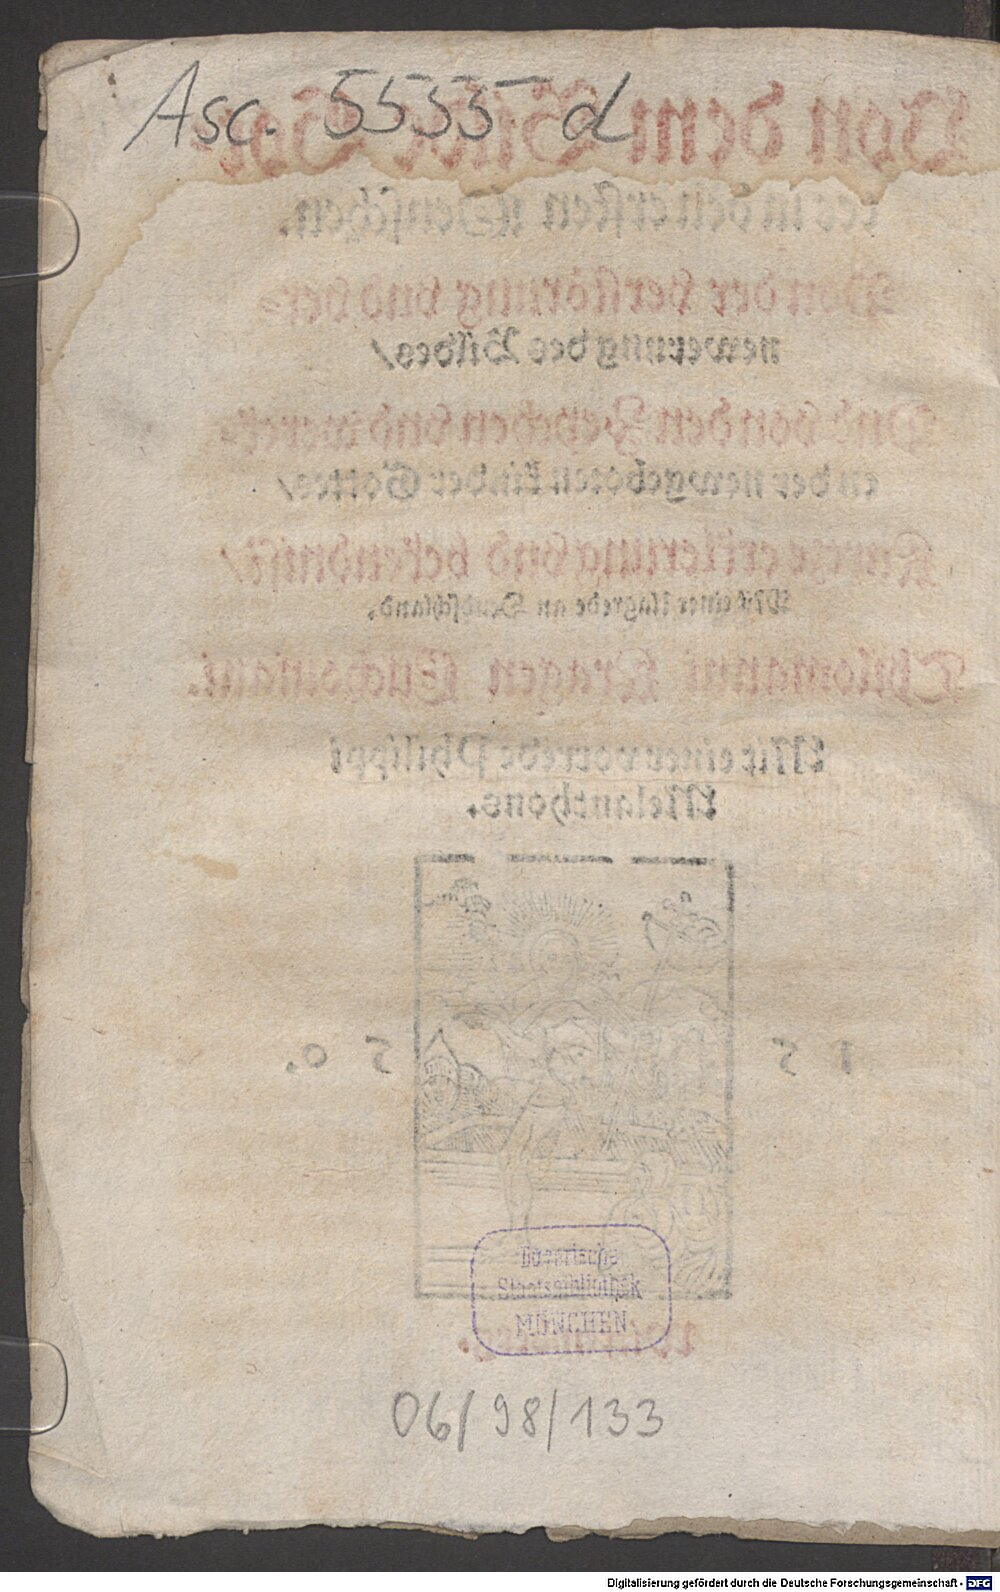 Asc. 5535 d
Von dem Bilde Got-
tes in den ersten Menschen.
Von der verstörung vnd ver-
newerung des Bildes/
Vnd von den Zeychen vnd werck-
en der newgeboren kinder Gottes/
Kurtze erklerung vnd bekendnuß/
Mit einer klagrede an Deudschland.
Thilomanni Kragen
Mit einer vorrede Philippi
Melanthons.
1 5 5 0.
Bayerische
Staatsbibliothek
MÜNCHEN
06/98/133
Digitalisierung gefördert durch die Deutsche Forschungsgemeinschaft - DFG